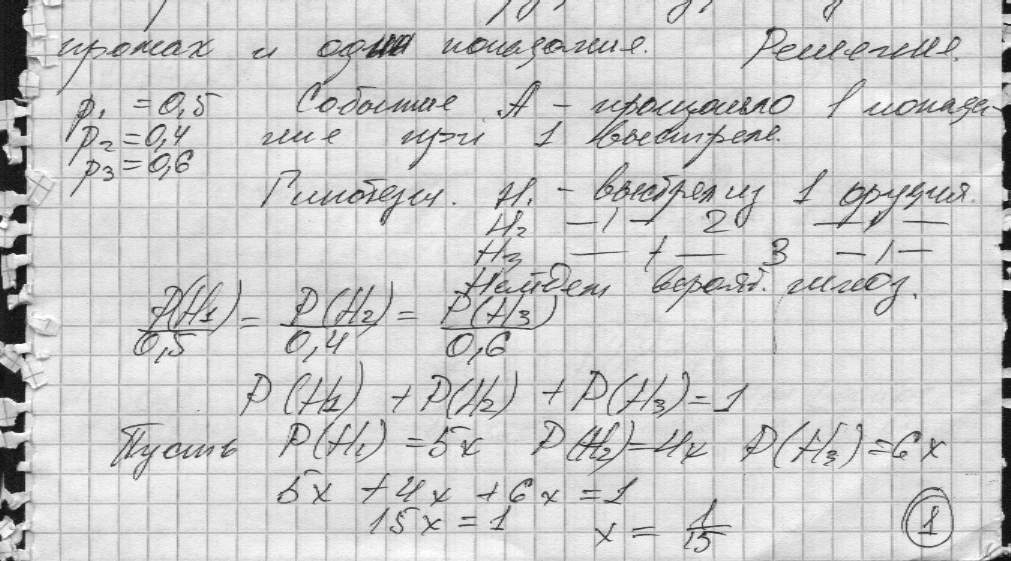 промах и одна попадания. Решение.
p₁ = 0,5 Событие A – произошло 1 попада-
p₂ = 0,4 ние при 1 выстреле.
p₃ = 0,6
Гипотезы. H₁ – выстрел из 1 орудия.
H₂ —ı— 2 —ı—
H₃ —ı— 3 —ı—
Найдем вероят. гипоз.
P(H₁)/0,5 = P(H₂)/0,4 = P(H₃)/0,6
P(H₁) + P(H₂) + P(H₃) = 1
Пусть P(H₁) = 5x P(H₂) = 4x P(H₃) = 6x
5x + 4x + 6x = 1
15x = 1 x = 1/15
1